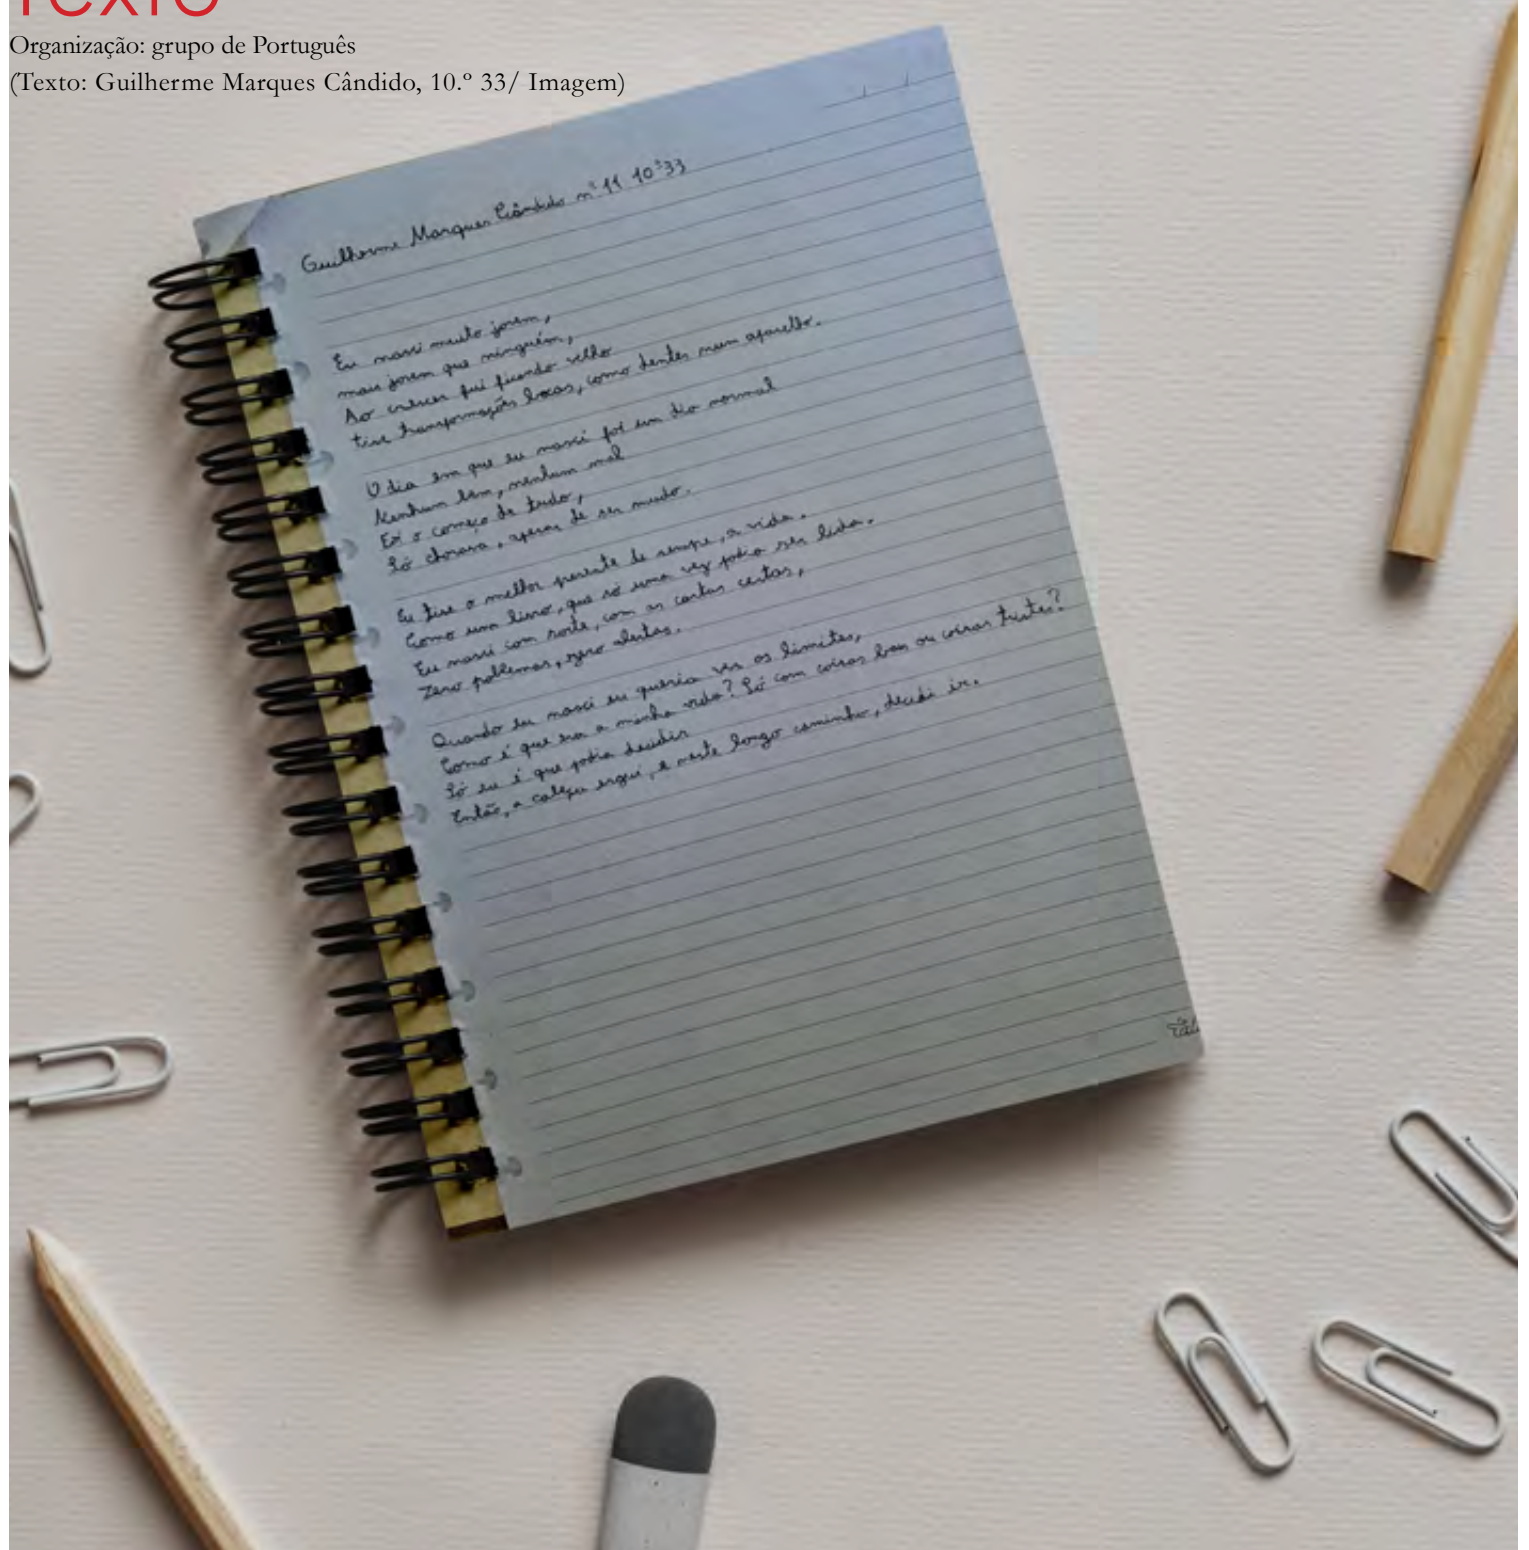 TEXTO
Organização: grupo de Português
(Texto: Guilherme Marques Cândido, 10.º 33/ Imagem)
Guilherme Marques Cândido nº 11 10º33
Eu nasci muito jovem,
mais jovem que ninguém,
Ao crescer fui ficando velho
tive transformações locas, como dentes num aparelho.
O dia em que eu nasci foi um dia normal
Nenhum bem, nenhum mal
Foi o começo de tudo,
Só chorava, apesar de ser mudo.
Eu tive o melhor presente de sempre, a vida.
Como um livro, que só uma vez podia ser lida.
Eu nasci com sorte, com as cartas certas,
Zero problemas, zero alertas.
Quando eu nasci eu queria ver os limites,
Como é que era a minha vida? Só com coisas boas ou coisas tristes?
Só eu é que podia decidir
Então, a cabeça ergui, e neste longo caminho, decidi ir.